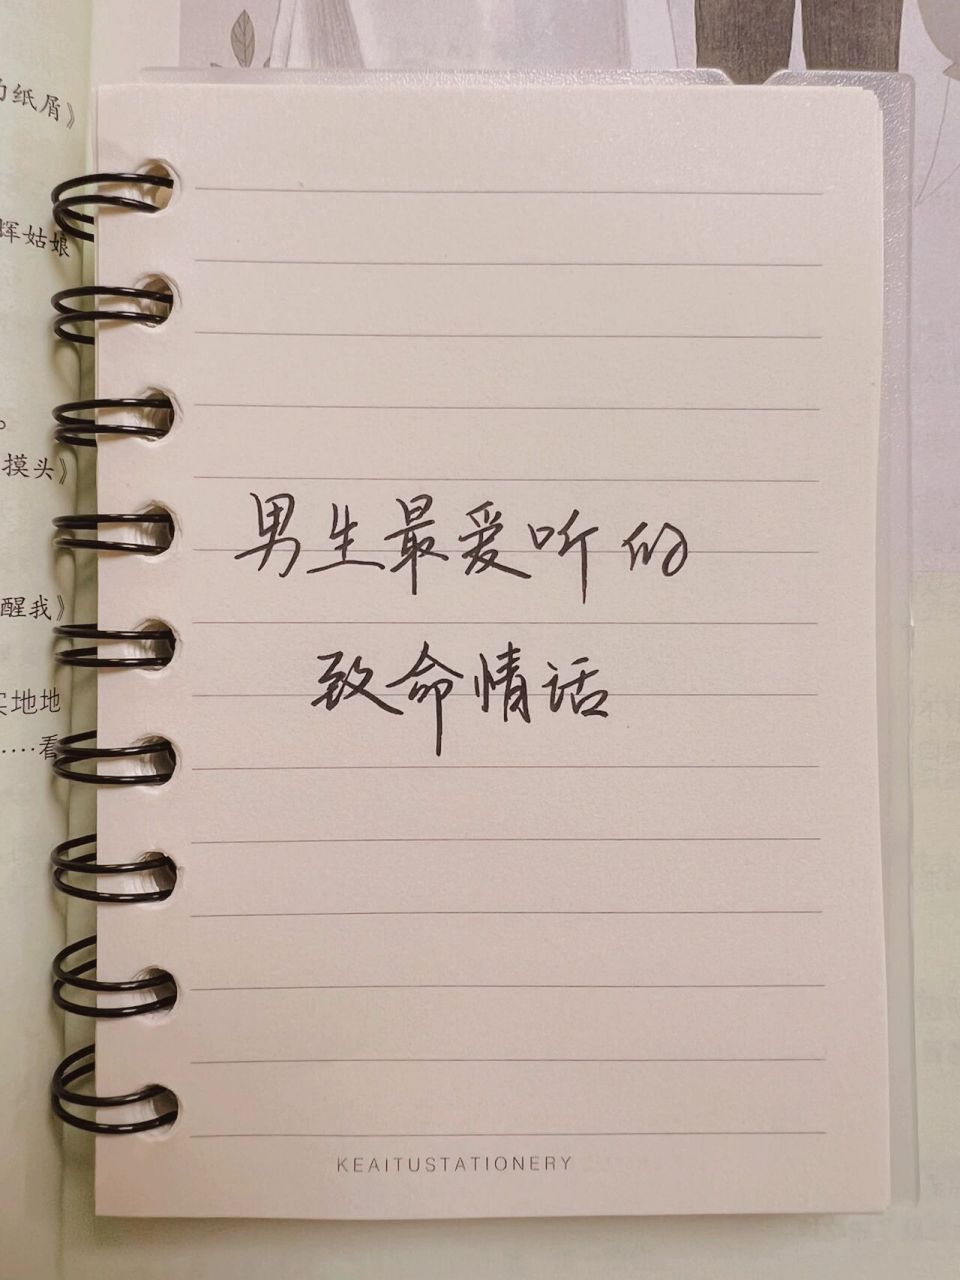 的纸屑》
辉姑娘
。
摸头》
醒我》
实地地
……看
男生最爱听的
致命情话
KEAITUSTATIONERY